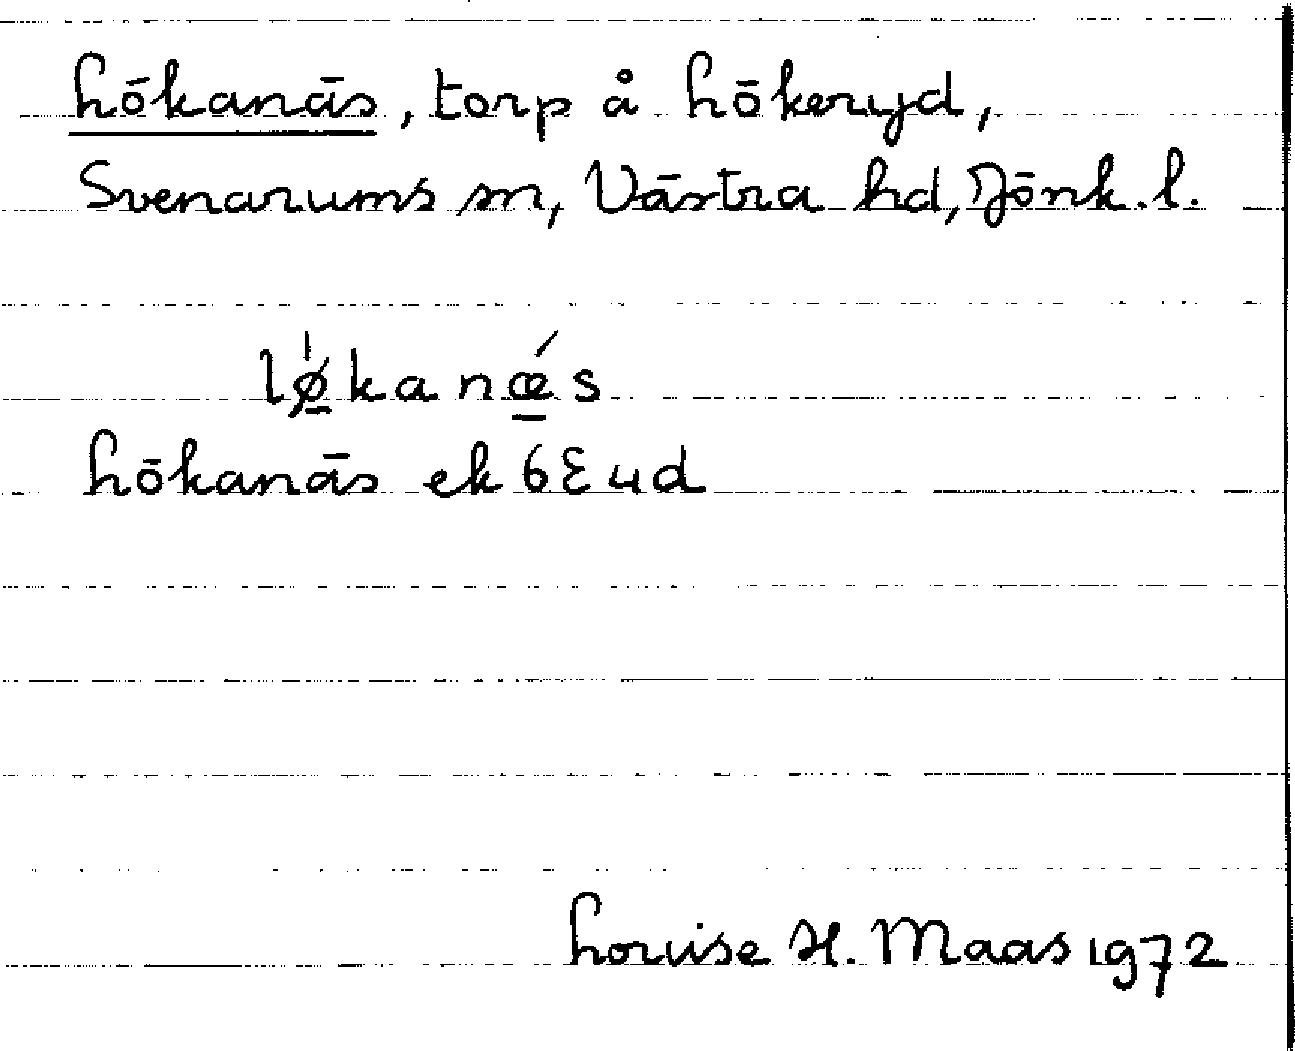 Lökanäs, torp å Lökeryd,
Svenarums sn, Västra hd, Jönk. l.
lø̱̍kanœ̱́s
Lökanäs ek 6E4d
Louise H. Maas 1972